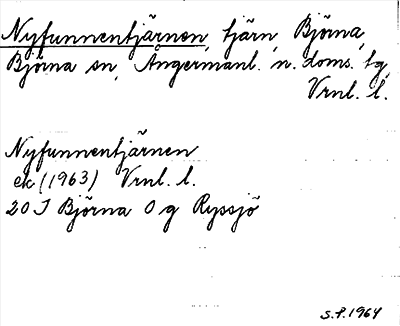 Nyfunnentjärnen, tjärn, Björna,
Björna sn, Ångermanl. n. doms. tg,
Vrnl. l.
Nyfunnentjärnen
ek (1963) Vrnl. l.
20 I Björna 0 g Ryssjö
S.f. 1964